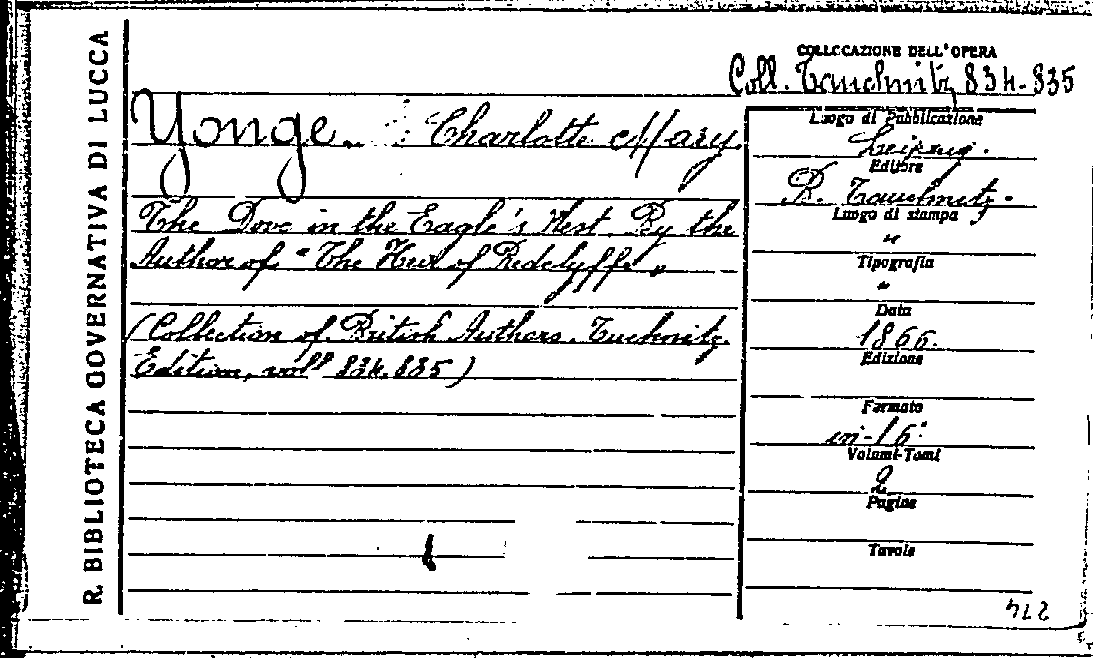 R. BIBLIOTECA GOVERNATIVA DI LUCCA
COLLOCAZIONE DELL'OPERA
Coll. Tauchnitz 834-835
Yonge Charlotte Mary.
The Dove in the Eagle's Nest. By the
Author of "The Heir of Redclyffe"
(Collection of British Authors. Tuchnitz
Edition, voll 834.835)
Luogo di Pubblicazione
Leipzig.
Editore
B. Tauchnitz.
Luogo di stampa
"
Tipografia
"
Data
1866.
Edizione
Formato
in-16º
Volumi-Tomi
2
Pagine
Tavole